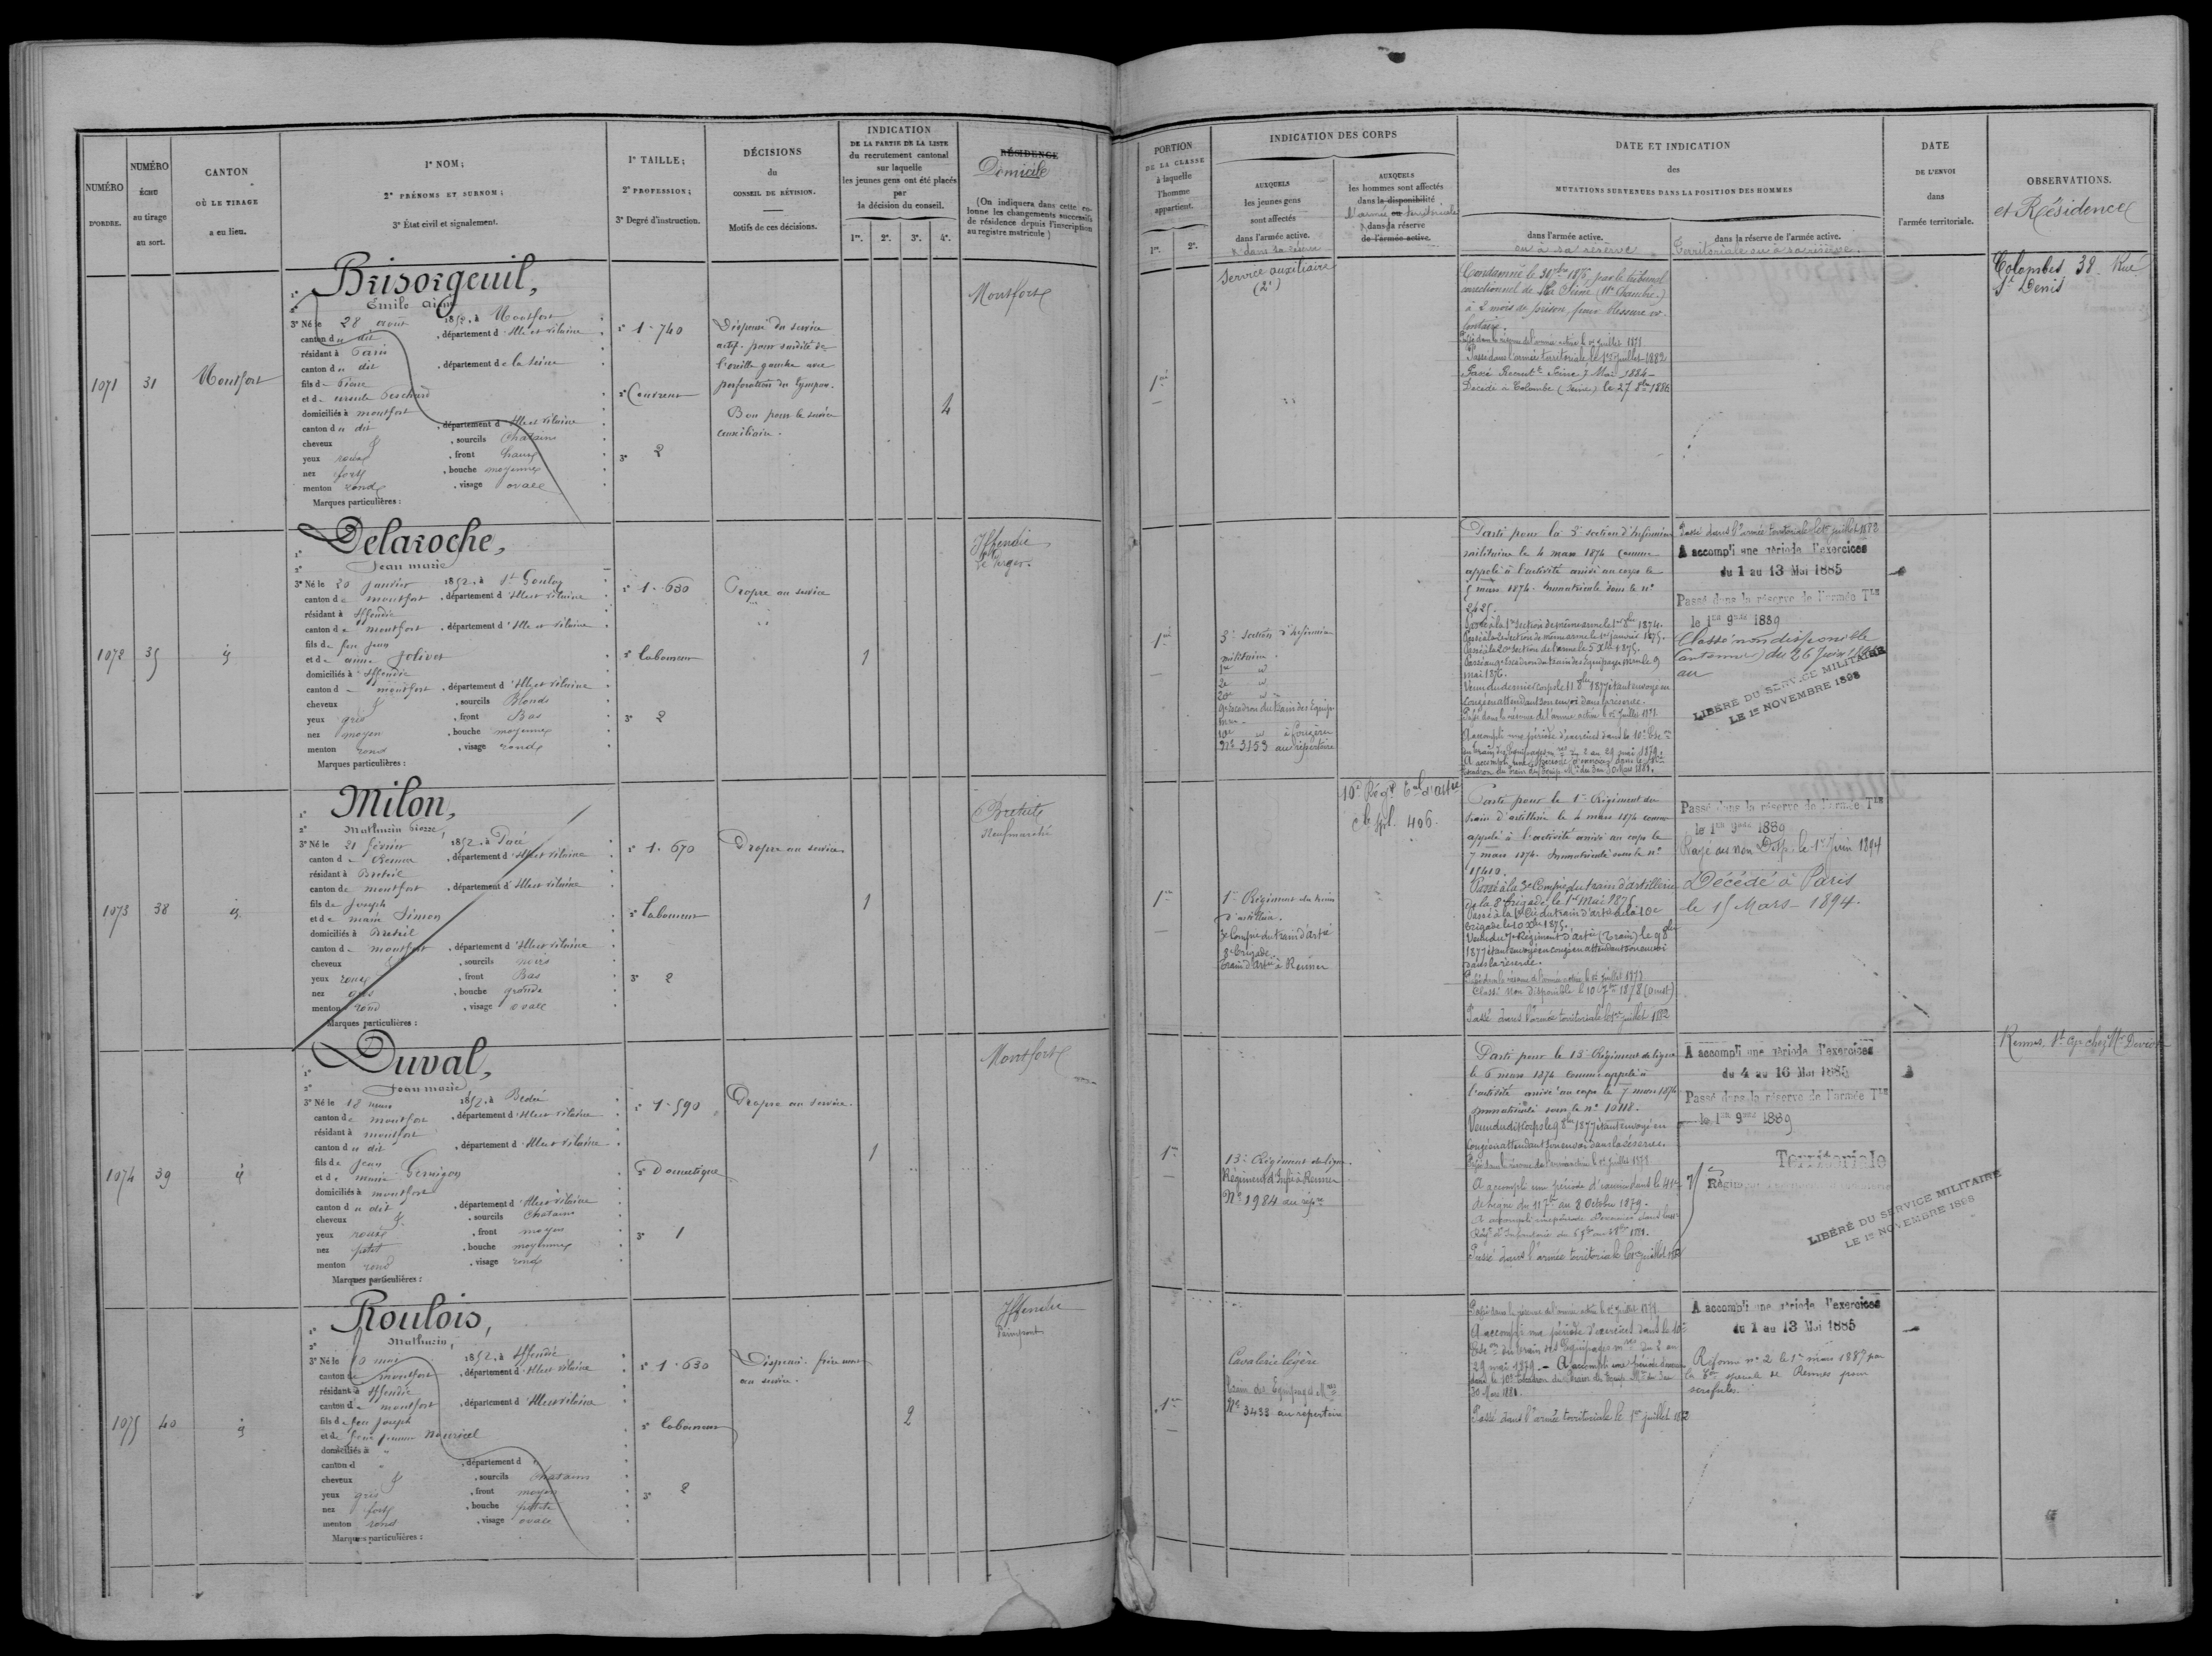 NUMÉRO
D'ORDRE.
NUMÉRO
ÉCHU
au tirage
au sort.
CANTON
OÙ LE TIRAGE
a eu lieu.
1° NOM;
2° PRÉNOMS ET SURNOM;
3° État civil et signalement.
1° TAILLE;
2° PROFESSION;
3° Degré d'instruction.
DÉCISIONS
du
CONSEIL DE RÉVISION.
Motifs de ces décisions.
INDICATION
DE LA PARTIE DE LA LISTE
du recrutement cantonal
sur laquelle
les jeunes gens ont été placés
par
la décision du conseil.
1re. 2e. 3e. 4e.
RÉSIDENCE
Domicile
(On indiquera dans cette co-
lonne les changements successifs
de résidence depuis l'inscription
au registre matricule)
PORTION
DE LA CLASSE
à laquelle
l'homme
appartient.
1re. 2e.
INDICATION DES CORPS
AUXQUELS
les jeunes gens
sont affectés
dans l'armée active.
& dans sa réserve
AUXQUELS
les hommes sont affectés
dans la disponibilité
l'armée ou territoriale
& dans sa réserve
de l'armée active.
DATE ET INDICATION
des
MUTATIONS SURVENUES DANS LA POSITION DES HOMMES
dans l'armée active.
ou à sa réserve
dans la réserve de l'armée active.
Territoriale ou à sa réserve.
DATE
DE L'ENVOI
dans
l'armée territoriale.
OBSERVATIONS.
et Résidence
1071
31
Montfort
Brisorgeuil,
1°
2° Emile
3° Né le 28 août 1852, à Montfort
canton du dit, département d'Ille et Vilaine
résidant à Paris
canton du dit, département de la Seine
fils de Pierre
et de
domiciliés à Montfort
canton du dit, département d'Ille et Vilaine
cheveux &, sourcils Chatains
yeux roux, front haut
nez fort, bouche moyenne
menton rond, visage ovale
Marques particulières :
1° 1-740
2° Couvreur
3° 2
Dispensé du service
actif pour surdité de
l'oreille gauche avec
perforation du tympan.
Bon pour le service
auxiliaire.
4
Montfort
1re
Service auxiliaire
(2e)
Condamné le 1876 par le tribunal
correctionnel de la Seine (11e Chambre)
à 2 mois de prison pour blessure vo-
lontaire.
Passé dans la réserve de l'armée active le 1er juillet 1878
Passé dans l'armée territoriale le 1er juillet 1882
Passé Recrut Seine 7 Mai 1884
Décédé à Colombe (Seine) le 27 8bre 1886
Colombes, 38 Rue
St Denis
1072
35
id
Delaroche,
1°
2° Jean marie
3° Né le 20 janvier 1852, à St Gonlay
canton de montfort, département d'Ille et Vilaine
résidant à Iffendic
canton de montfort, département d'Ille et Vilaine
fils de feu Jean
et de anne Jolivet
domiciliés à Iffendic
canton de montfort, département d'Ille et Vilaine
cheveux &, sourcils Blonds
yeux gris, front Bas
nez moyen, bouche moyenne
menton rond, visage rond
Marques particulières :
1° 1-630
2° Laboureur
3° 2
Propre au service
1
Iffendic
le Verger.
1re
3e section d'infirmiers
militaire.
1re id
2e id
20e id
9e Escadron du train des Equip
10e id à Fougères
No 3153 au répertoire
Parti pour la 3e section d'infirmiers
militaire le 4 mars 1874 comme
appelé à l'activité arrivé au corps le
5 mars 1874. Immatriculé sous le n°
2425.
Passé à la 1re section de même arme le 1er 8bre 1874.
Passé à la 2e section de même arme le 1er janvier 1875.
Passé à la 20e section de l'arme le 5 Xbre 1875.
Passé au 9e Escadron du train des Equipages mres le 9
mai 1876.
Venu du dernier corps le 11 8bre 1877 étant envoyé en
congé en attendant son envoi dans la réserve.
Passé dans la réserve de l'armée active le 1er juillet 1878
A accompli une période d'exercices dans le 10e Esc
du train des Equipages mres du 2 au 29 mai 1879.
A accompli une période d'exercices dans le 10e
Escadron du train des Equip. Mres du 3 au 30 Mars 1881.
Passé dans l'armée territoriale le 1er juillet 1882
A accompli une période d'exercices
du 1 au 13 Mai 1885
Passé dans la réserve de l'armée Tle
le 1er 9bre 1889
Classé non disponible
(Cantonnier) du 26 Juin
au
LIBÉRÉ DU SERVICE MILITAIRE
LE 1er NOVEMBRE 1898
1073
38
id
Milon,
1°
2° Mathurin Pierre,
3° Né le 21 février 1852, à Pacé
canton de Rennes, département d'Ille et Vilaine
résidant à Breteil
canton de montfort, département d'Ille et Vilaine
fils de Joseph
et de marie Simon
domiciliés à Breteil
canton de montfort, département d'Ille et Vilaine
cheveux &, sourcils noirs
yeux roux, front Bas
nez gros, bouche grande
menton rond, visage ovale
Marques particulières :
1° 1-670
2° Laboureur
3° 2
Propre au service
1
Breteil
Neufmarché
1re
1er Régiment du train
d'artillerie.
3e Compie du train d'artie
8e brigade.
train d'artie à Rennes
10e Régt d'artie
406
Parti pour le 1er Régiment du
train d'artillerie le 4 mars 1874 comme
appelé à l'activité arrivé au corps le
7 mars 1874. Immatriculé sous le n°
15410.
Passé à la 3e Compie du train d'artillerie
de la 8e brigade le 1er Mai 1875
Passé à la 1re Cie du train d'artie de la 10e
brigade le 10 Xbre 1875.
Venu du 7e Régiment d'artie (Train) le 9 8bre
1877 étant envoyé en congé en attendant son envoi
dans la réserve.
Passé dans la réserve de l'armée active le 1er juillet 1878
Classé Non Disponible le 10 7bre 1878 (Ouest)
Passé dans l'armée territoriale le 1er juillet 1882
Passé dans la réserve de l'armée Tle
le 1er 9bre 1889
Rayé des Non Disp. le 1er Juin 1894
Décédé à Paris
le 15 Mars 1894.
1074
39
id
Duval,
1°
2° Jean marie
3° Né le 18 mars 1852, à Bédée
canton de montfort, département d'Ille et Vilaine
résidant à montfort
canton du dit, département d'Ille et Vilaine
fils de Jean
et de marie
domiciliés à montfort
canton du dit, département d'Ille et Vilaine
cheveux &, sourcils Chatains
yeux roux, front moyen
nez petit, bouche moyenne
menton rond, visage rond
Marques particulières :
1° 1-590
2° Domestique
3° 1
Propre au service.
1
Montfort
1re
13e Régiment de ligne.
Régiment d'Infie à Rennes
No 1984 au répre
Parti pour le 13e Régiment de ligne
le 6 mars 1874 comme appelé à
l'activité arrivé au corps le 7 mars 1874
immatriculé sous le n° 10118.
Venu du dit Corps le 9 8bre 1877 étant envoyé en
congé en attendant son envoi dans la réserve.
Passé dans la réserve de l'armée active le 1er juillet 1878
A accompli une période d'exercices dans le 41e
de ligne du 11 7bre au 8 Octobre 1879.
Passé dans l'armée territoriale le 1er juillet 1882
A accompli une période d'exercices
du 4 au 16 Mai 1885
Passé dans la réserve de l'armée Tle
le 1er 9bre 1889
Territoriale
75 Régiment
LIBÉRÉ DU SERVICE MILITAIRE
LE 1er NOVEMBRE 1898
Rennes, chez Mr
1075
40
id
Roulois,
1°
2° Mathurin,
3° Né le 10 mai 1852, à Iffendic
canton de montfort, département d'Ille et Vilaine
résidant à Iffendic
canton de montfort, département d'Ille et Vilaine
fils de feu Joseph
et de feue
domiciliés à "
canton d ", département d "
cheveux &, sourcils Chatains
yeux gris, front moyen
nez fort, bouche petite
menton rond, visage ovale
Marques particulières :
1° 1-630
2° Laboureur
3° 2
Dispensé. frère
au service.
2
Iffendic
Paimpont
1re
Cavalerie légère
Train des Equipages Mres
No 3433 au répertoire
Passé dans la réserve de l'armée active le 1er juillet 1878
A accompli une période d'exercices dans le 10e
Esc du train des Equipages mres du 2 au
29 mai 1879. - A accompli une période d'exercices
dans le 10e Escadron du Train des Equip. Mres du 3 au
30 Mars 1881.
Passé dans l'armée territoriale le 1er juillet 1882
A accompli une période d'exercices
du 1 au 13 Mai 1885
Réformé n° 2 le 1er mars 1887 par
la Con spéciale de Rennes pour
scrofules.